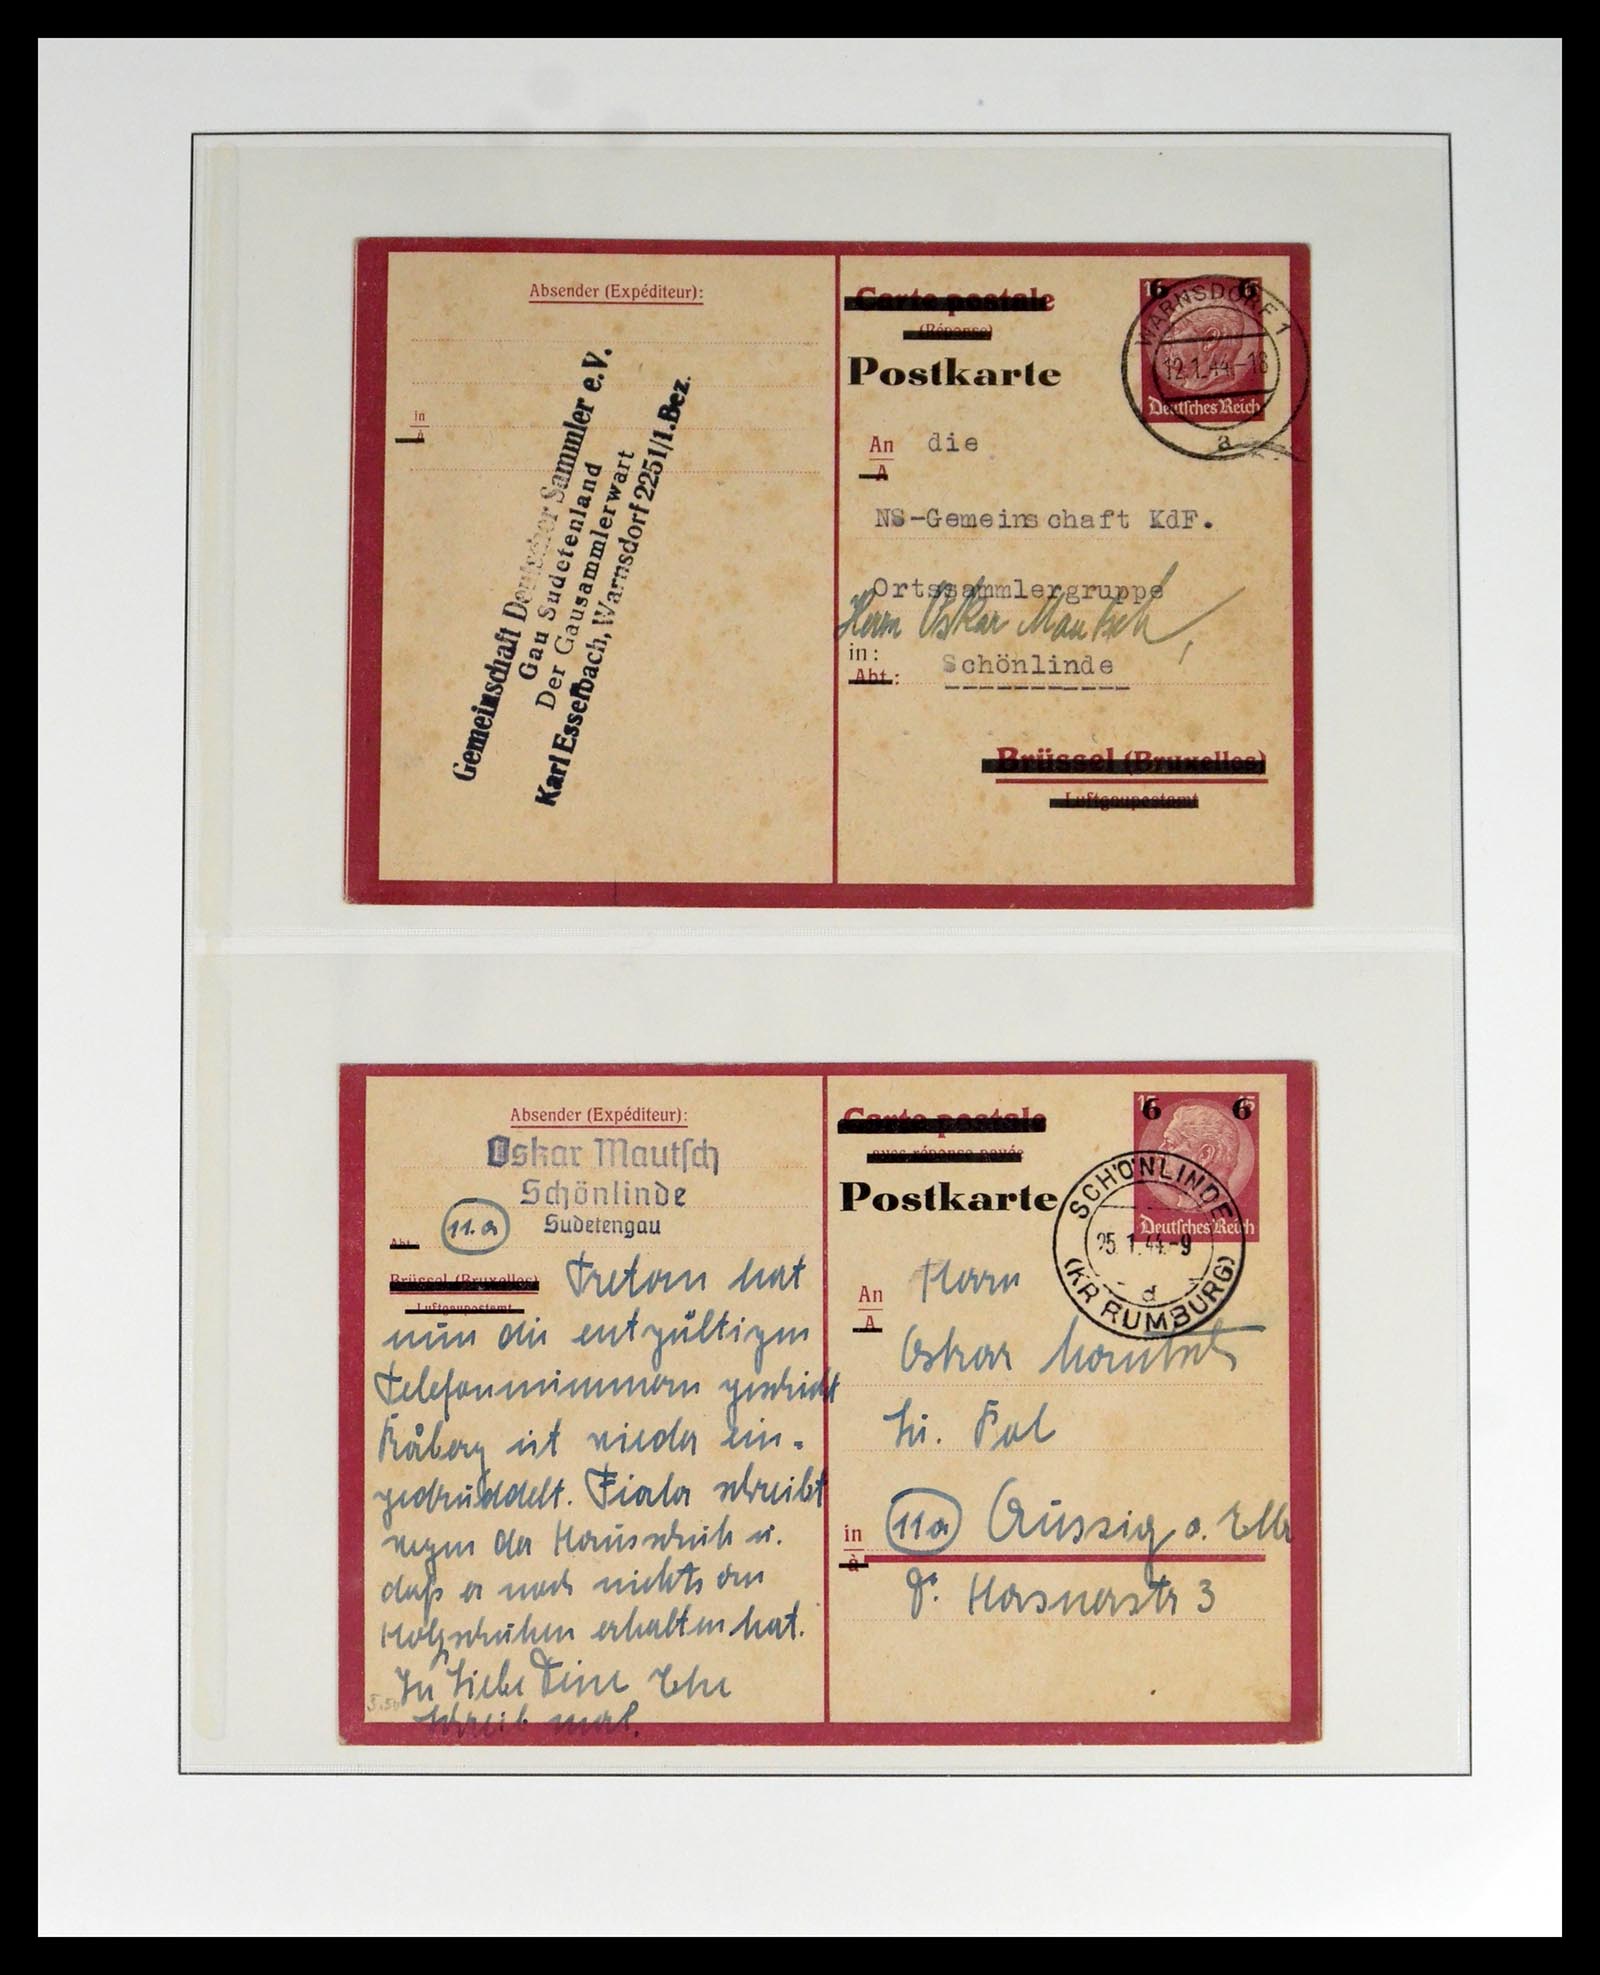 Absender (Expéditeur):
in
A
Gemeinschaft Deutscher Sammler e.V.
Gau Sudetenland
Der Gausammlerwart
Karl Esselbach, Warnsdorf 2251/1.Bez.
Carte postale
(Réponse)
Postkarte
6 6
Deutsches Reich
WARNSDORF 1
12.1.44.-18
a
An die
A
NS-Gemeinschaft KdF.
Ortssammlergruppe
Herrn Oskar Mautsch,
in:
Abt.: Schönlinde
Brüssel (Bruxelles)
Luftgaupostamt
Absender (Expéditeur):
Oskar Mautsch
Schönlinde
Sudetengau
11.a
Abt.:
Brüssel (Bruxelles)
Luftgaupostamt
hat
nun die entgültigen
Telefonnummern geschickt
ist wieder ein-
gedruddelt. Fiala schreibt
wegen der Hausschuh u.
daß er noch nichts von
Holzschuhen erhalten hat.
In Liebe Deine
schreib mal.
Carte postale
avec réponse payée
Postkarte
15 15
6 6
Deutsches Reich
SCHÖNLINDE
25.1.44.-9
d
(KR RUMBURG)
An Herrn
A
Oskar Mautsch
in 11a Aussig a. Elbe
à
Hasnerstr 3